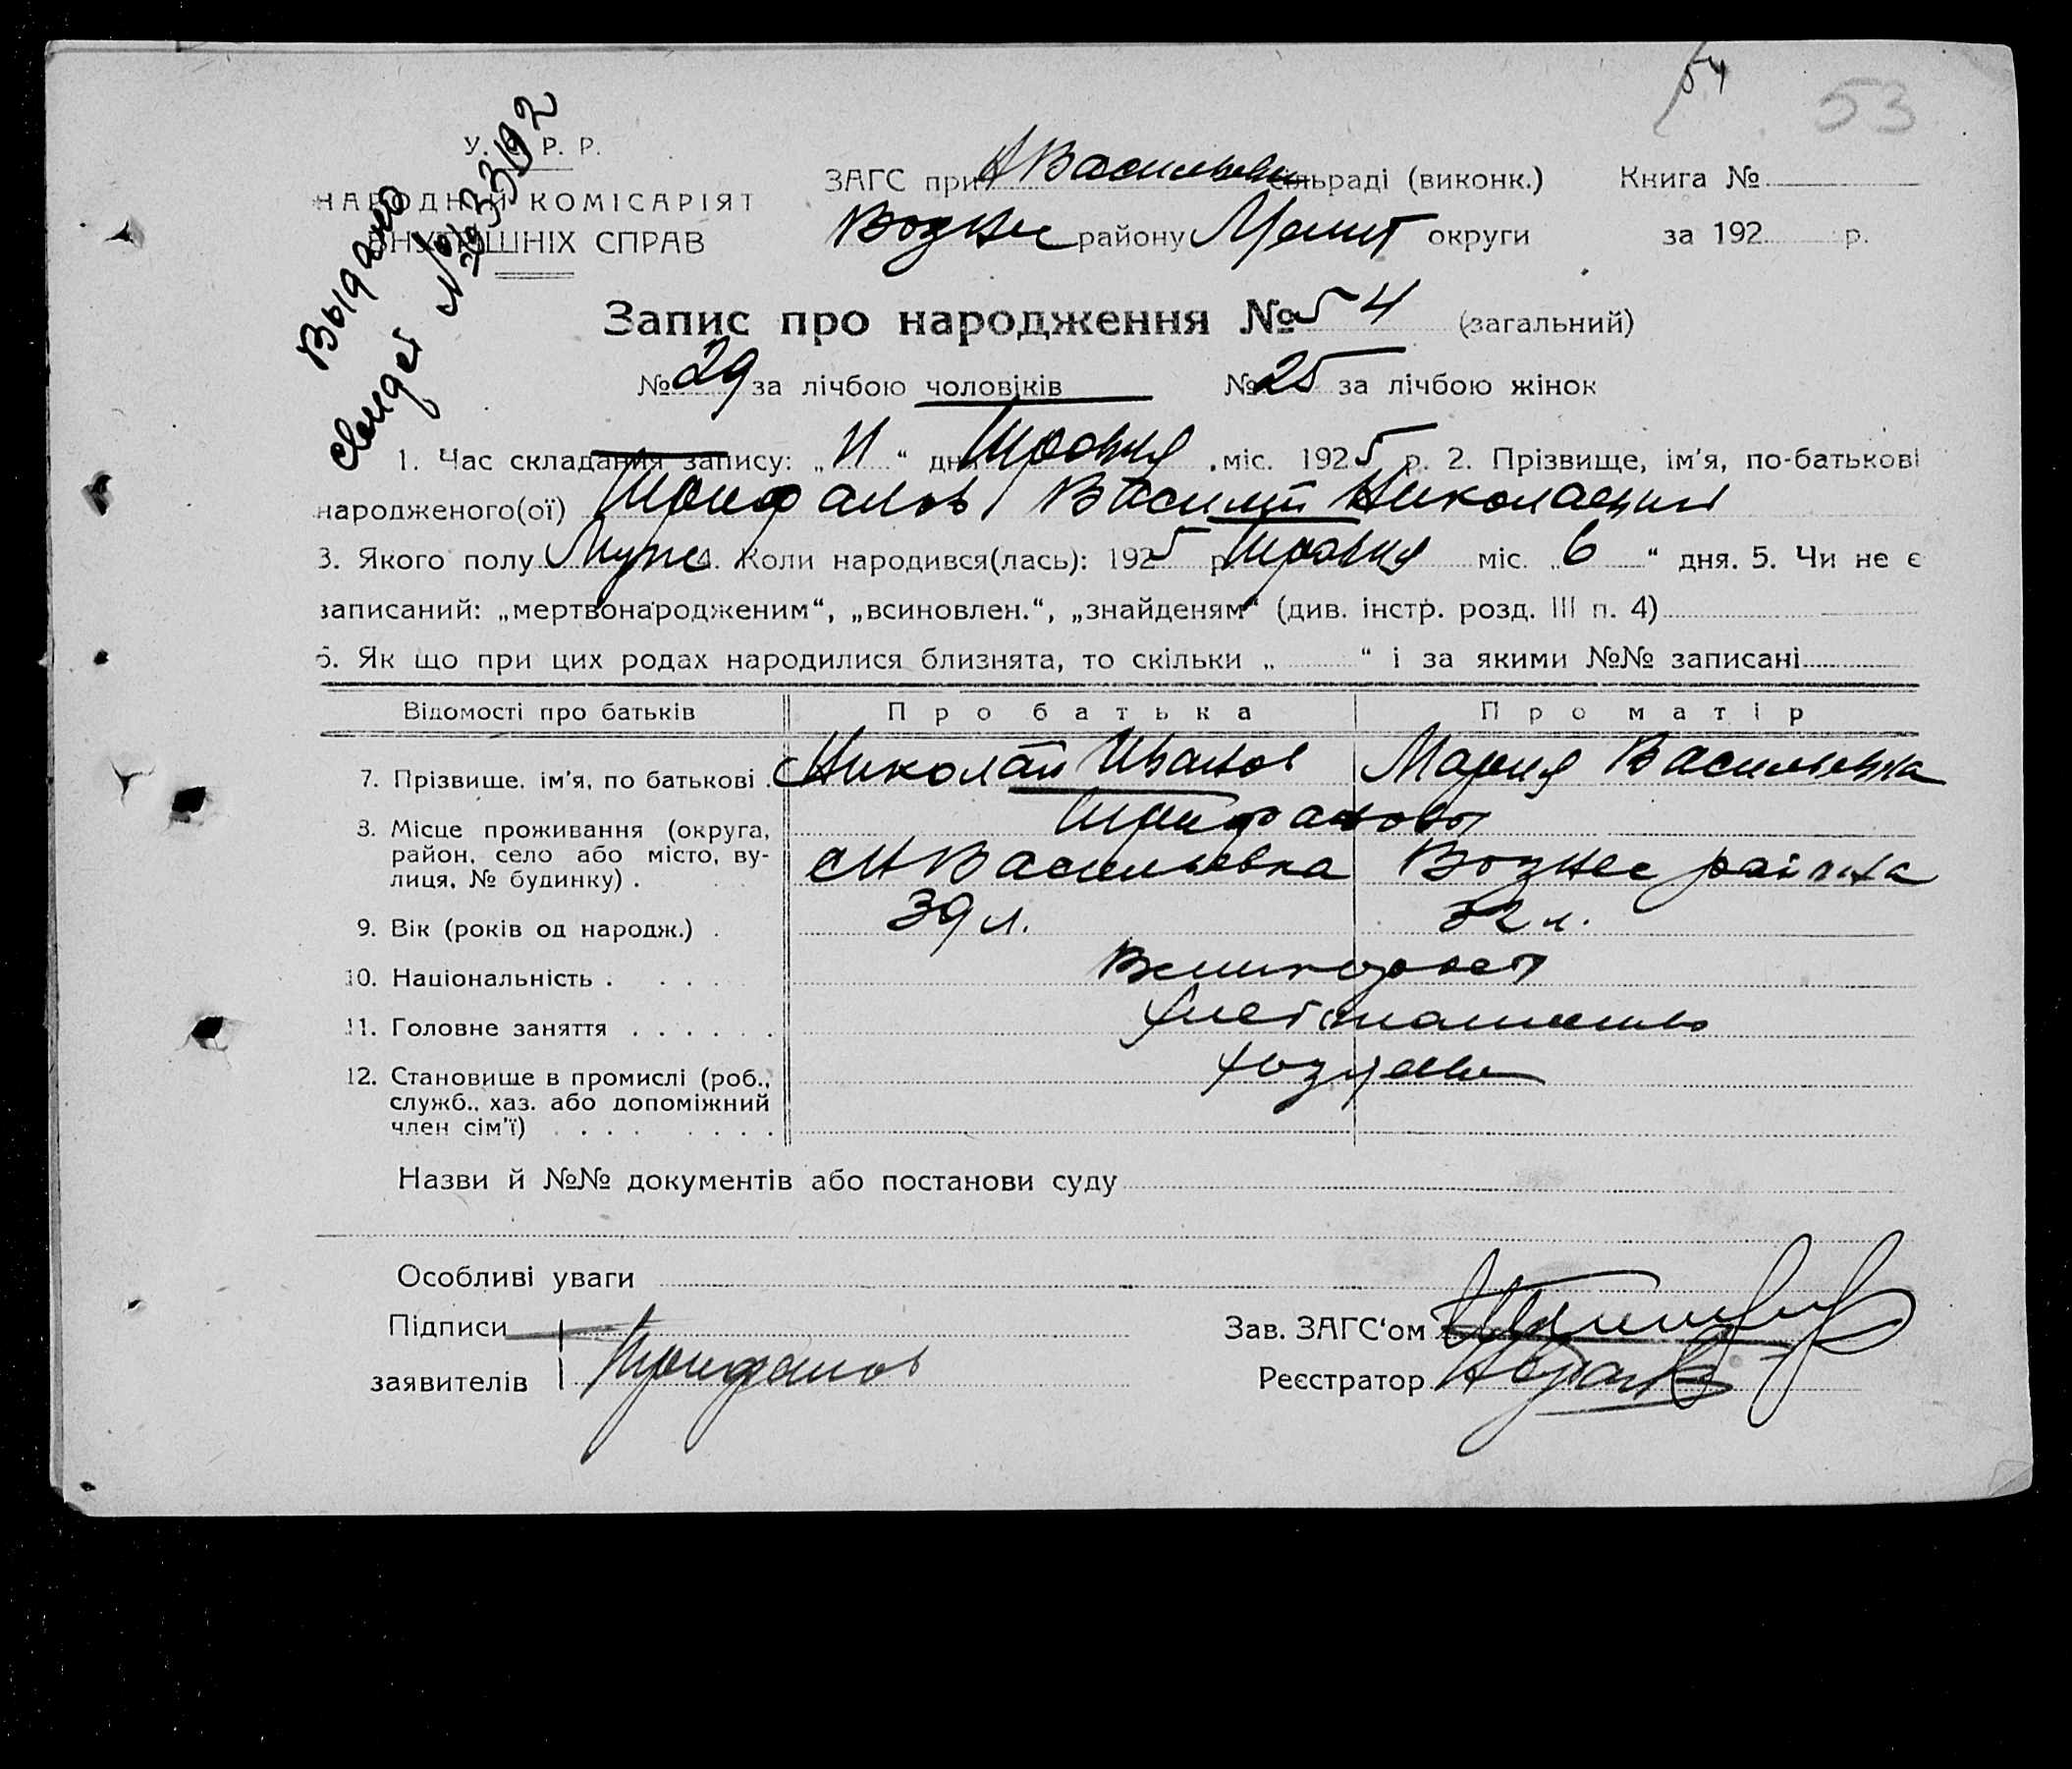 54
53
У. С. Р. Р.
НАРОДНІЙ КОМІСАРІЯТ
ВНУТРІШНІХ СПРАВ
Выдано
свидет №
ЗАГС при Н Васильевки сільраді (виконк.) Книга №
Вознес району Мелит округи за 192 р.
Запис про народження № 54 (загальний)
№ 29 за лічбою чоловіків № 25 за лічбою жінок
1. Час складання запису: „11“ дня Травня міс. 1925 р. 2. Прізвище, ім'я, по-батькові
народженого(ої) Трифанов Василий Николаевич
3. Якого полу Муже 4. Коли народився(лась): 1925 р. Травня міс. „6“ дня. 5. Чи не є
записаний: „мертвонародженим“, „всиновлен.“, „знайденям“ (див. інстр. розд. III п. 4)
6. Як що при цих родах народилися близнята, то скільки „ “ і за якими №№ записані
Відомості про батьків Про батька Про матір
7. Прізвише. ім'я, по батькові . Николай Иванов Мария Васильевна
Трифановы
8. Місце проживання (округа, район, село або місто, вулиця, № будинку) . с Н Васильевка Вознес района
9. Вік (років од народж.) . 39 л. 32 л.
10. Національність . Великорост
11. Головне заняття . . . . . . хлебопашество
12. Становище в промислі (роб., служб., хаз. або допоміжний член сім'ї) . . . хозяева
Назви й №№ документів або постанови суду
Особливі уваги
Підписи
заявителів Трифанов
Зав. ЗАГС‘ом
Реєстратор